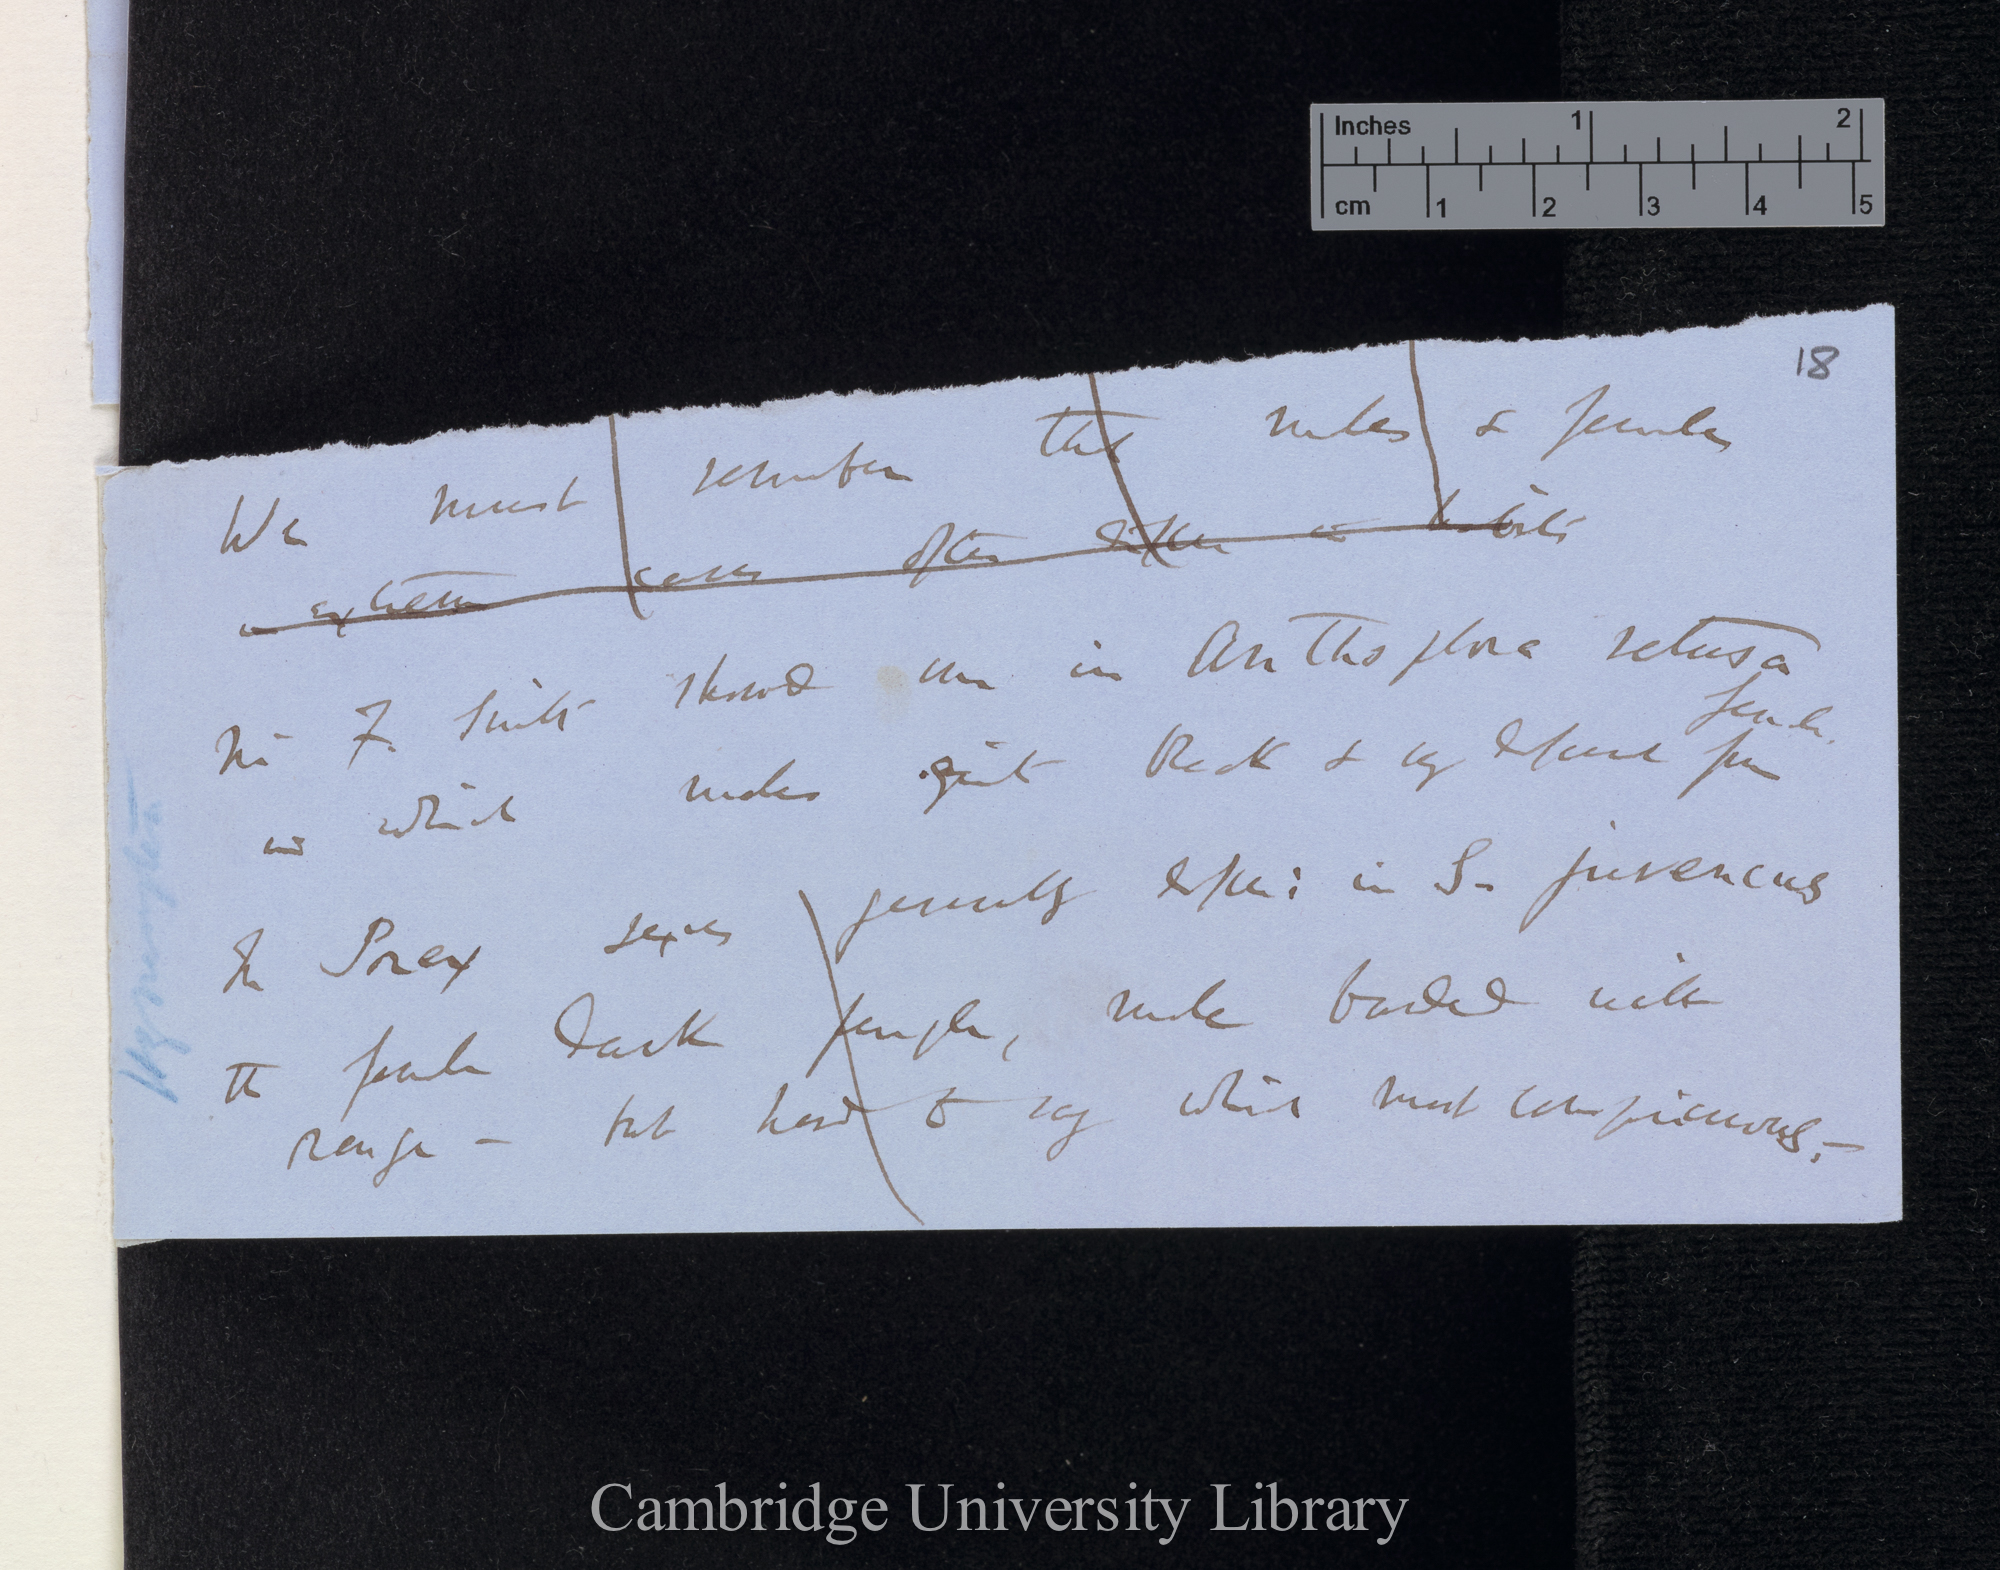 Inches 1 2
cm 1 2 3 4 5
18
We must remember that males & females
in extreme cases often differ in habits
Mr F. Smith showed me in Anthophora retusa
in which males quite black & very different from
female.
In Sirex sexes generally differ: in S. juvencus
the female dark purple, male banded with
range — but hard to say which most conspicuous.—
Hymenoptera
Cambridge University Library